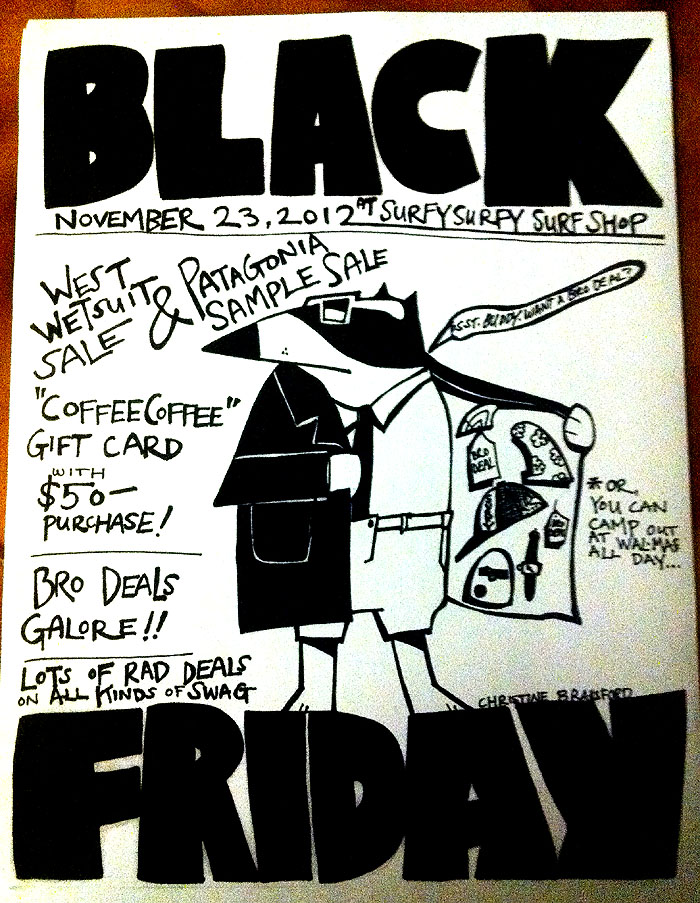 BLACK
NOVEMBER 23, 2012 AT SURFYSURFY SURF SHOP
WEST
WETSUIT
SALE
& PATAGONIA
SAMPLE SALE
PSST. BUDDY. WANT A BRO DEAL?
"COFFEECOFFEE"
GIFT CARD
WITH
$50—
PURCHASE!
BRO DEALS
GALORE!!
LOTS OF RAD DEALS
ON ALL KINDS OF SWAG
BRO
DEAL
*OR,
YOU CAN
CAMP OUT
AT WALMAR
ALL DAY...
CHRISTINE BRAILSFORD
FRIDAY